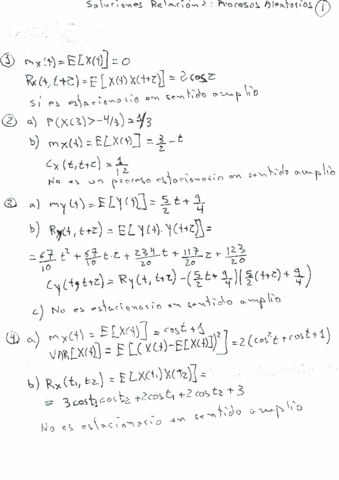 Soluciones Relación 2: Procesos Aleatorios ①
① mx(t)=E[X(t)]=0
Rx(t,t+z)=E[X(t)X(t+z)]=2cosz
Sí es estacionario en sentido amplio
② a) P(X(3)>-4/3)=1/3
b) mx(t)=E[X(t)]=3/2-t
Cx(t,t+z)=1/12
No es un proceso estacionario en sentido amplio
③ a) my(t)=E[Y(t)]=5/2 t+9/4
b) Ry(t,t+z)=E[Y(t).Y(t+z)]=
=67/10 t²+67/10 t.z+234/20 t+117/20 z+123/20
Cy(t,t+z)=Ry(t,t+z)-(5/2 t+9/4)(5/2 (t+z)+9/4)
c) No es estacionario en sentido amplio
④ a) mx(t)=E[X(t)]=cost+1
VAR[X(t)]=E[(X(t)-E[X(t)])²]=2(cos²t+cost+1)
b) Rx(t1,t2)=E[X(t1)X(t2)]=
=3cost1cost2+2cost1+2cost2+3
No es estacionario en sentido amplio